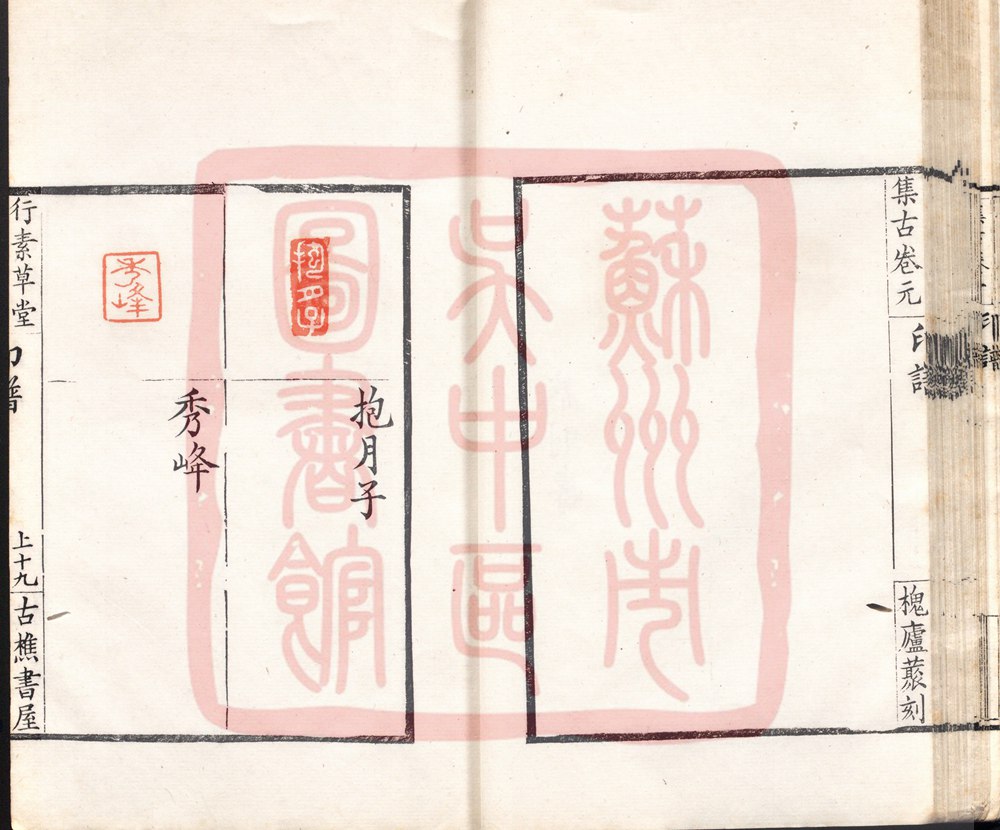 集古卷元
印譜
槐廬叢刻
蘇州市
吳中區
圖書館
抱月子
抱月子
秀峰
秀峰
行素草堂
印譜
上十九
古樵書屋